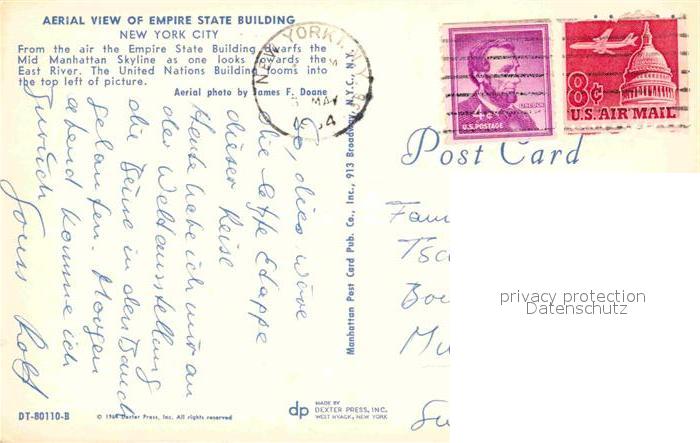 AERIAL VIEW OF EMPIRE STATE BUILDING
NEW YORK CITY
From the air the Empire State Building dwarfs the
Mid Manhattan Skyline as one looks towards the
East River. The United Nations Building looms into
the top left of picture.
Aerial photo by James F. Doane
NEW YORK, N.Y.
MAY
LINCOLN
4¢
U.S. POSTAGE
8¢
U.S. AIR MAIL
Post Card
So, dies wäre
die letzte Etappe
dieser Reise
Heute habe ich mir an
der Weltausstellung
die Beine in den Bauch
gelaufen. Morgen
abend komme ich
zurück
Gruss Rolf
Manhattan Post Card Pub. Co., Inc., 913 Broadway, N.Y.C., N.Y.
Fam
Tsc
Bo
Mu
privacy protection
Datenschutz
DT-80110-B
© 1964 Dexter Press, Inc. All rights reserved
dp
MADE BY
DEXTER PRESS, INC.
WEST NYACK, NEW YORK